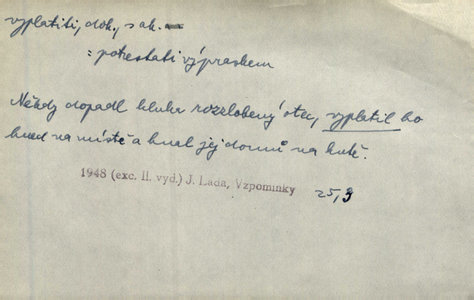 vyplatiti, dok., s ak. —
: potrestati výpraskem
Někdy dopadl kluka rozzlobený otec, vyplatil ho
hned na místě a hnal jej domů na
1948 (exc. II. vyd.) J. Lada, Vzpomínky 25,9